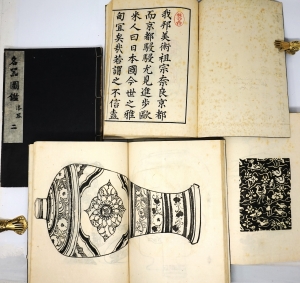 名器圖鑑
二
我邦美術祖宗奈良京都
而京都駸駸尤見進步歐
米人曰日本國今世之雅
旬宜矣哉若謂之不信盍